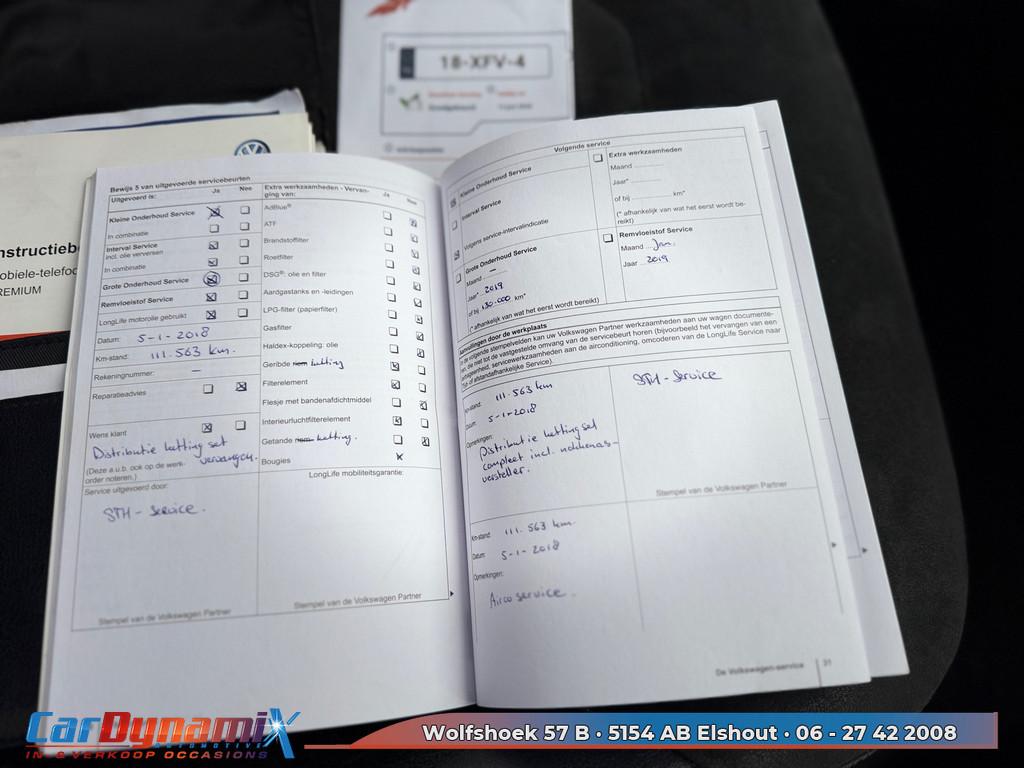 18-XFV-4
nstructiebo
obiele-telefoo
REMIUM
Bewijs 5 van uitgevoerde servicebeurten
Uitgevoerd is: Ja Nee
Kleine Onderhoud Service
In combinatie
Interval Service
incl. olie verversen
In combinatie
Grote Onderhoud Service
Remvloeistof Service
LongLife motorolie gebruikt
Datum: 5-1-2018
Km-stand: 111.563 km.
Rekeningnummer: –
Reparatieadvies
Wens klant
Distributie ketting set
vervangen.
(Deze a.u.b. ook op de werk-
order noteren.)
Service uitgevoerd door:
STH - Service.
Stempel van de Volkswagen Partner
Extra werkzaamheden - Vervan-
ging van: Ja Nee
AdBlue®
ATF
Brandstoffilter
Roetfilter
DSG®: olie en filter
Aardgastanks en -leidingen
LPG-filter (papierfilter)
Gasfilter
Haldex-koppeling: olie
Geribde riem ketting
Filterelement
Flesje met bandenafdichtmiddel
Interieurluchtfilterelement
Getande riem ketting.
Bougies
LongLife mobiliteitsgarantie:
Stempel van de Volkswagen Partner
Volgende service
Kleine Onderhoud Service
Interval Service
Volgens service-intervalindicatie
Grote Onderhoud Service
Maand –
Jaar* 2019
of bij 130.000 km*
(* afhankelijk van wat het eerst wordt bereikt)
Extra werkzaamheden
Maand
Jaar*
of bij km*
(* afhankelijk van wat het eerst wordt be-
reikt)
Remvloeistof Service
Maand Jan.
Jaar 2019
Aanvullingen door de werkplaats
In de volgende stempelvelden kan uw Volkswagen Partner werkzaamheden aan uw wagen documente-
ren, die niet tot de vastgestelde omvang van de servicebeurt horen (bijvoorbeeld het vervangen van een
servicewerkzaamheden aan de airconditioning, omcoderen van de LongLife Service naar
tijd- of afstandafhankelijke Service).
Km-stand: 111.563 km
Datum: 5-1-2018
Opmerkingen:
Distributie ketting set
compleet incl. nokkenas-
versteller.
STH - Service
Stempel van de Volkswagen Partner
Km-stand: 111.563 km
Datum: 5-1-2018
Opmerkingen:
Airco service.
De Volkswagen-service 31
CarDynamiX
AUTOMOTIVE
IN- & VERKOOP OCCASIONS
Wolfshoek 57 B • 5154 AB Elshout • 06 - 27 42 2008